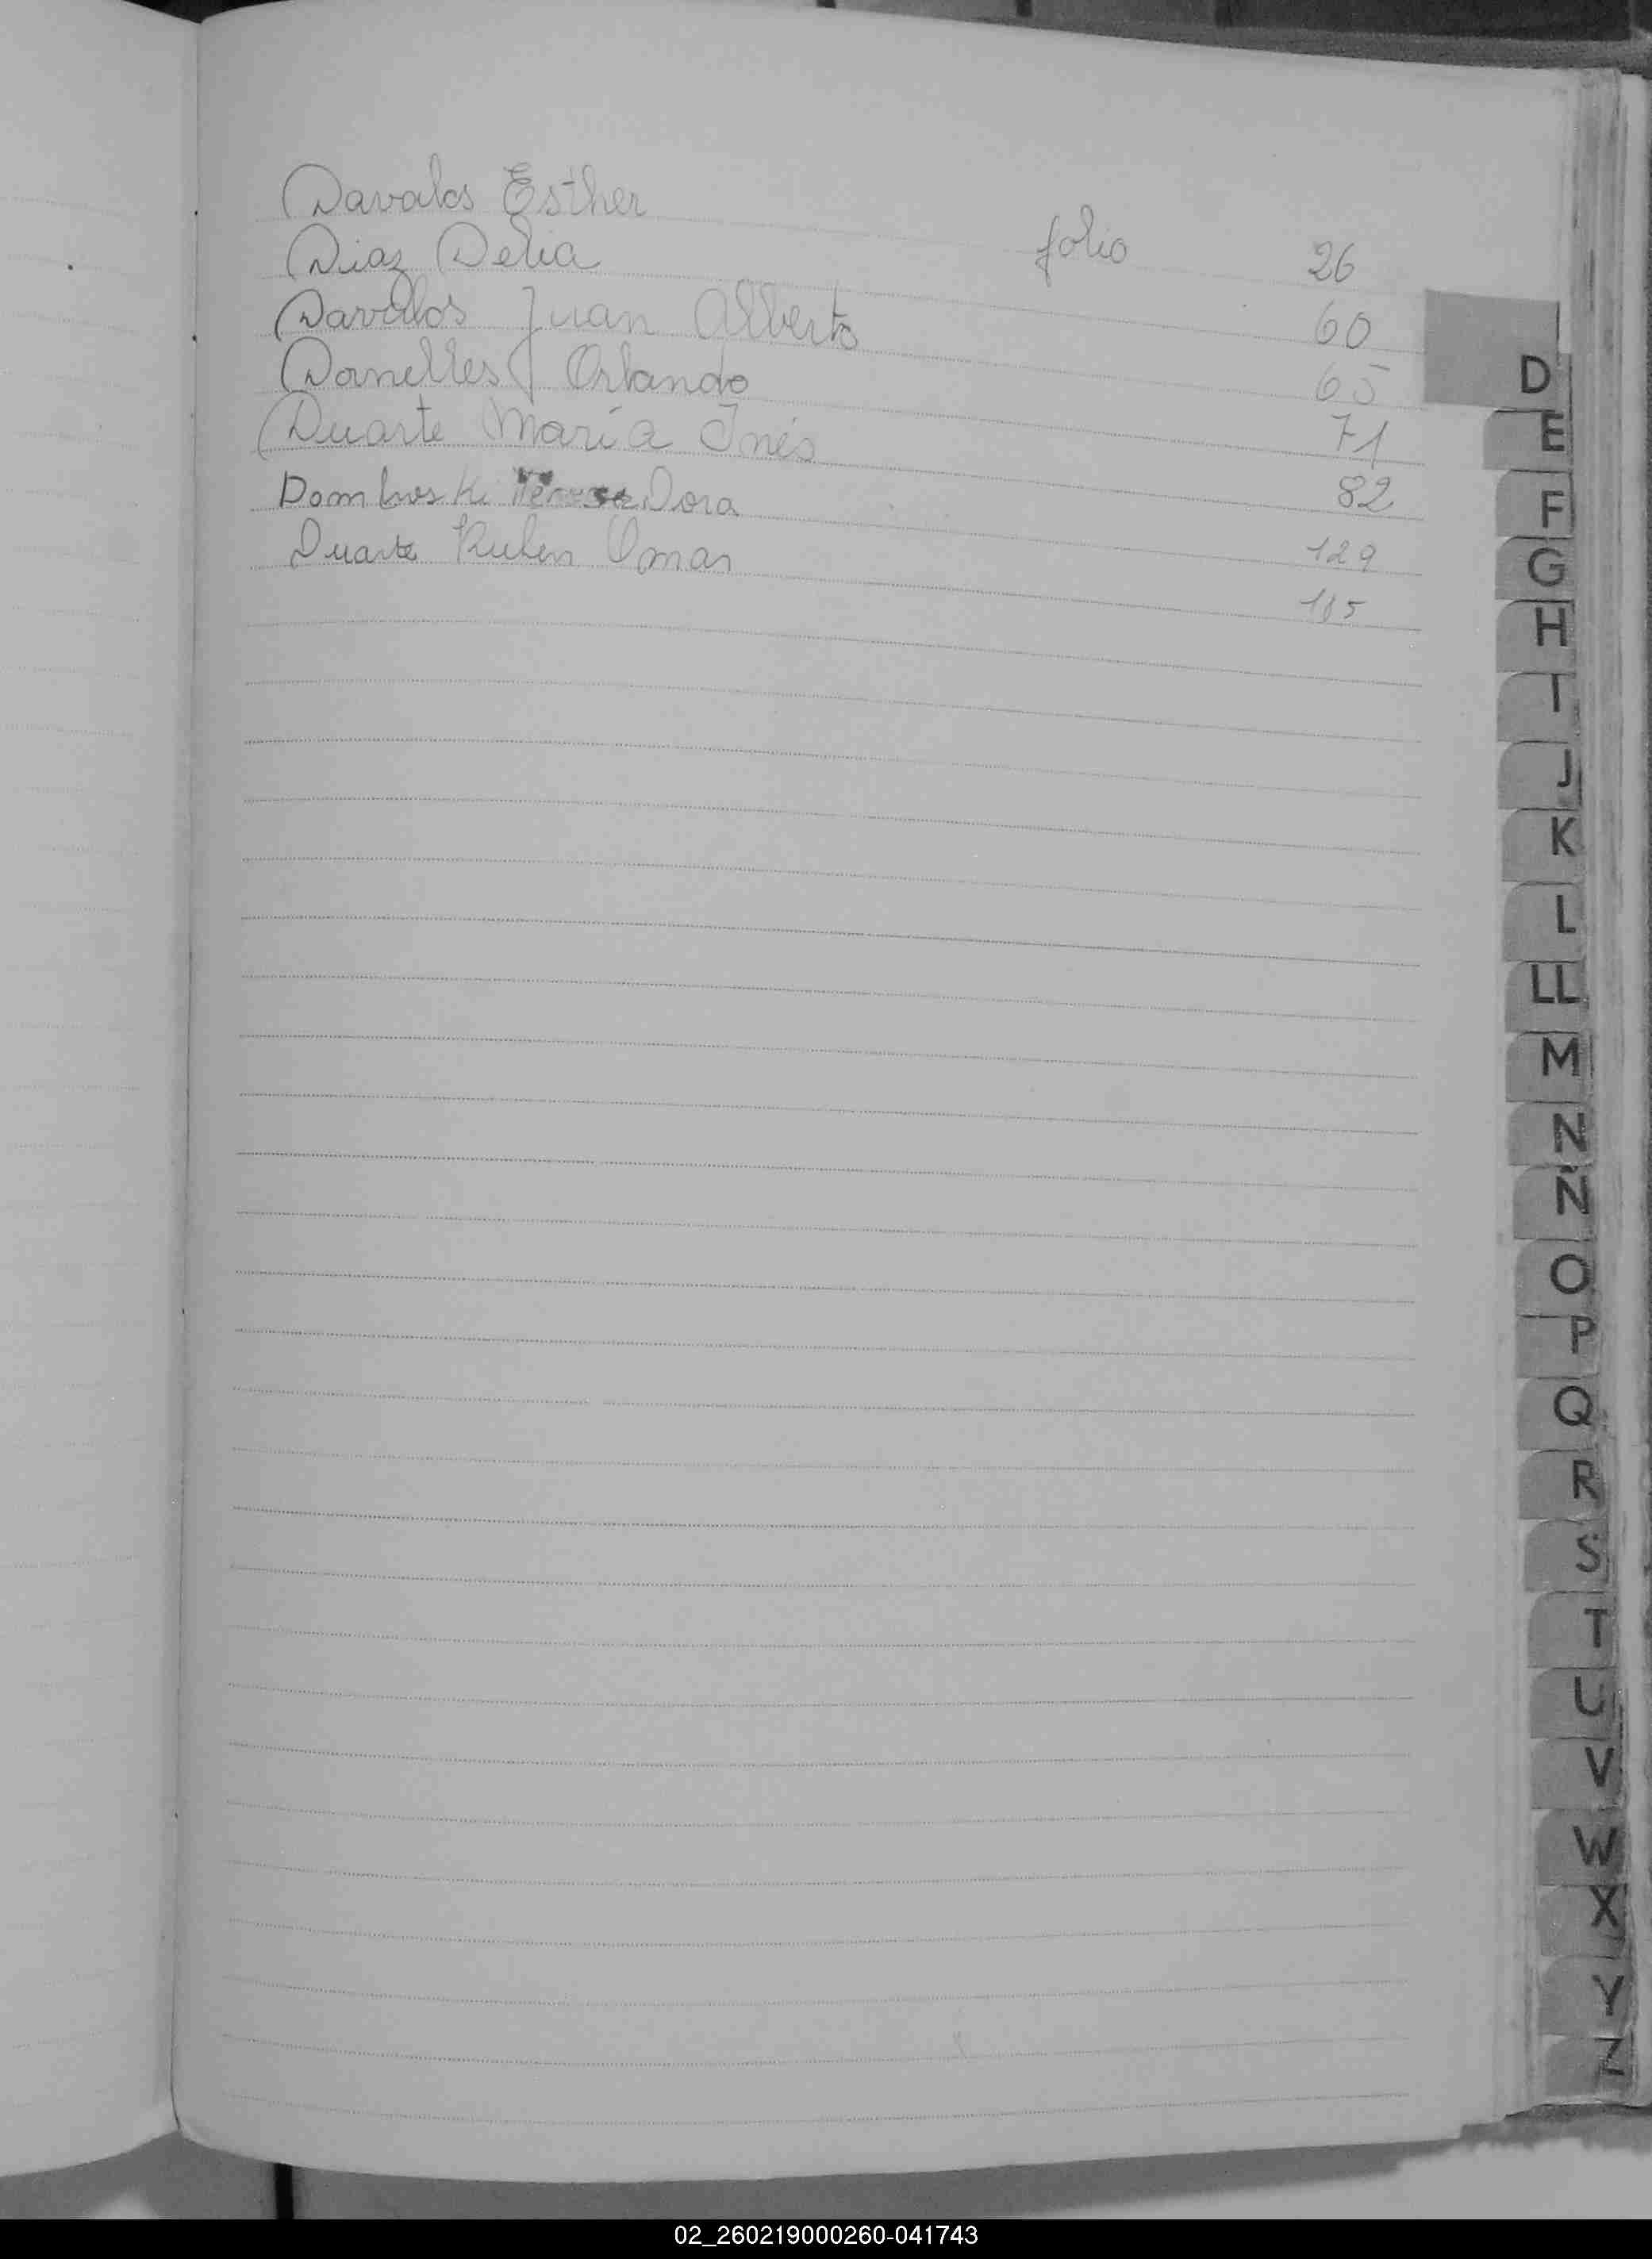 Davalos Esther folio 26
Diaz Delia 60
Davalos Juan Alberto 65
Dornelles Orlando 71
Duarte María Inés 82
Dombroski Teresa Dora 129
Duarte Ruben Omar 115
D
E
F
G
H
I
J
K
L
LL
M
N
Ñ
O
P
Q
R
S
T
U
V
W
X
Y
Z
02_260219000260-041743